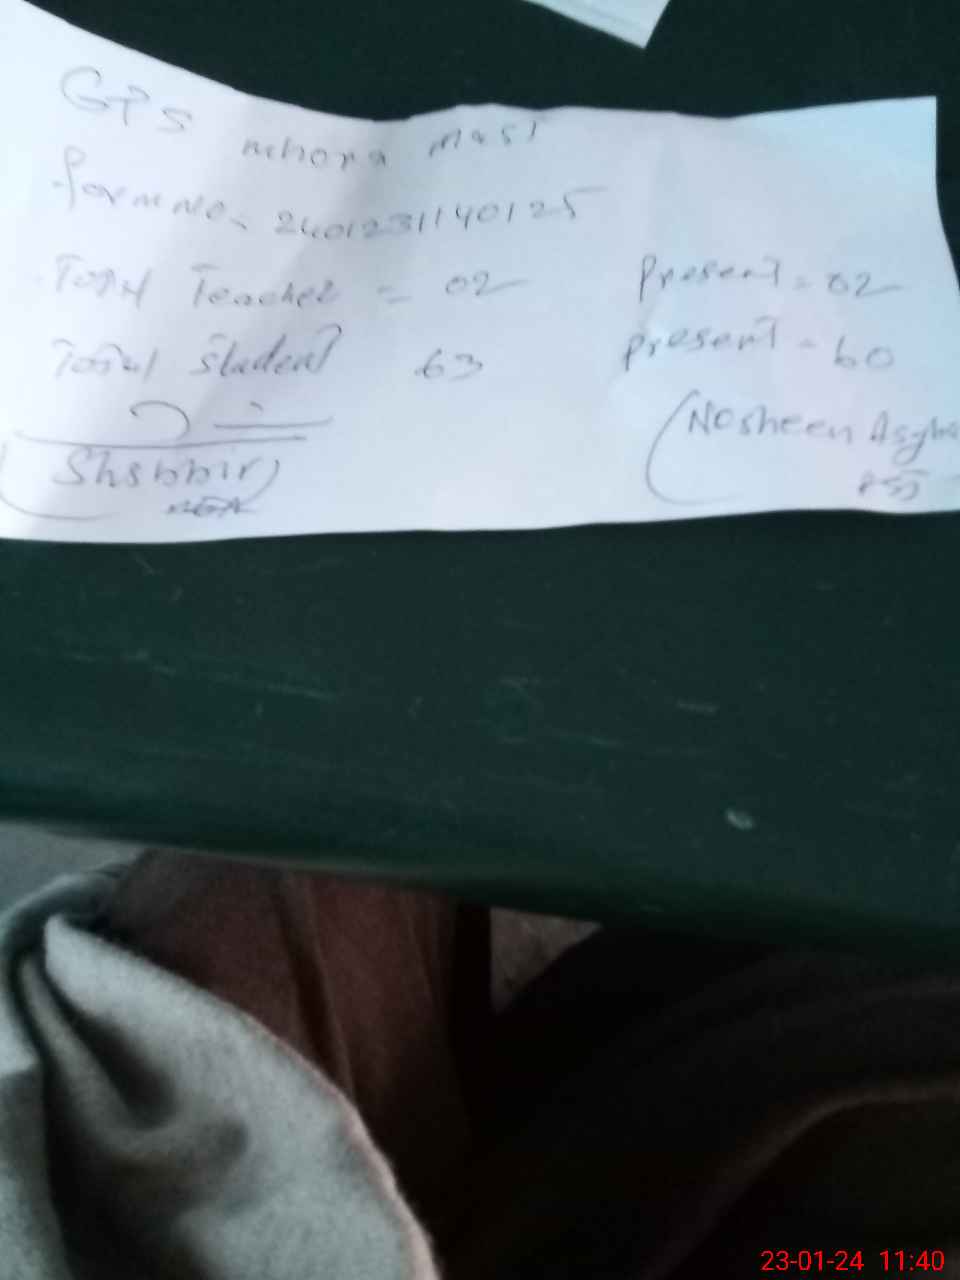 GPS mhora mast
form no. 2401231140125
Total Teacher = 02 Present = 02
Total Student 63 Present = 60
(Shabbir)
(Nosheen
23-01-24 11:40